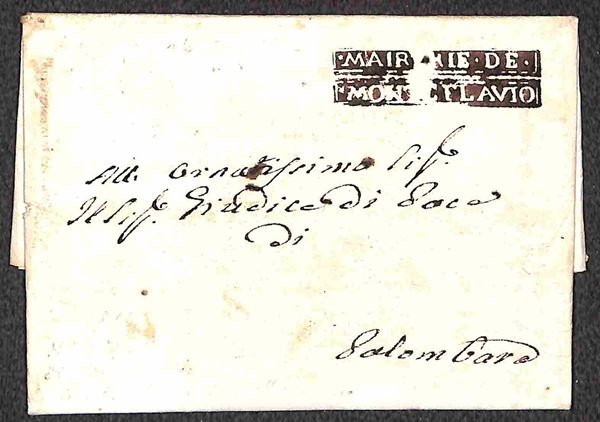 MAIRIE · DE ·
MONTE FLAVIO
All. Ornatissimo Sig.
Il Sig. Giudice di Pace
di
Palombara